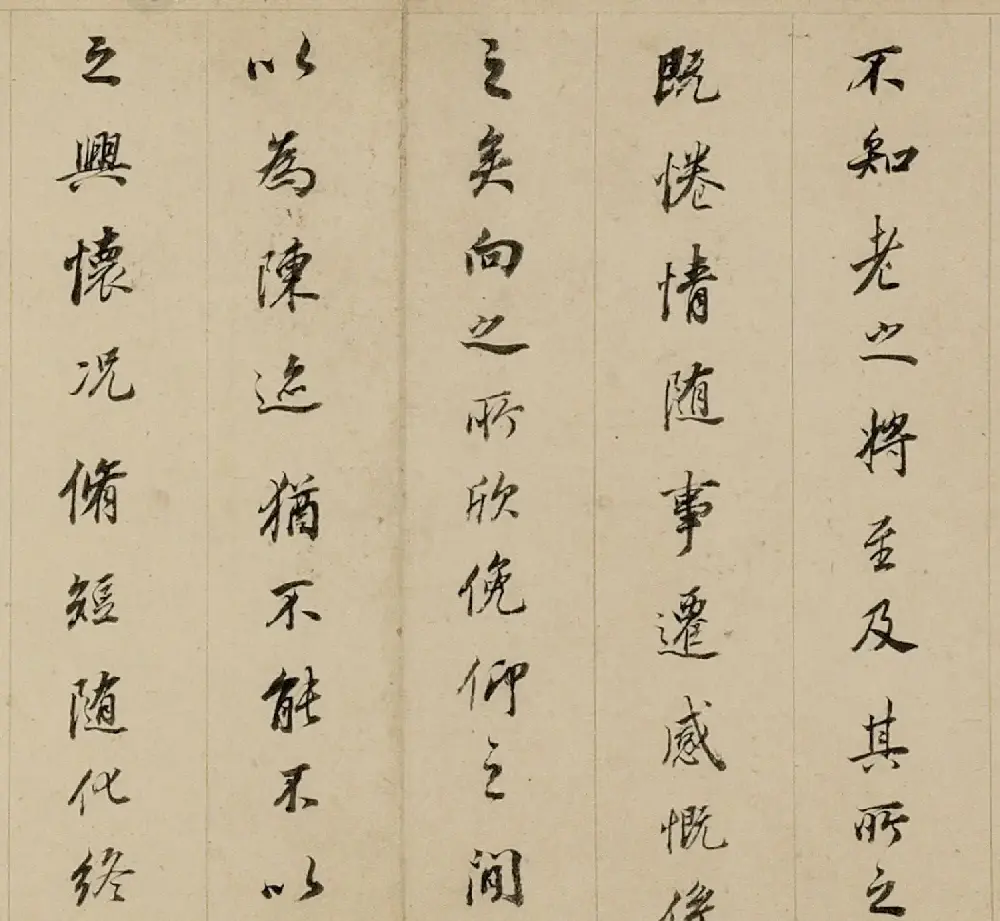 不知老之將至及其所之
既惓情随事遷感慨係
之矣向之所欣俛仰之間
以為陳迹猶不能不以
之興懷况脩短随化終